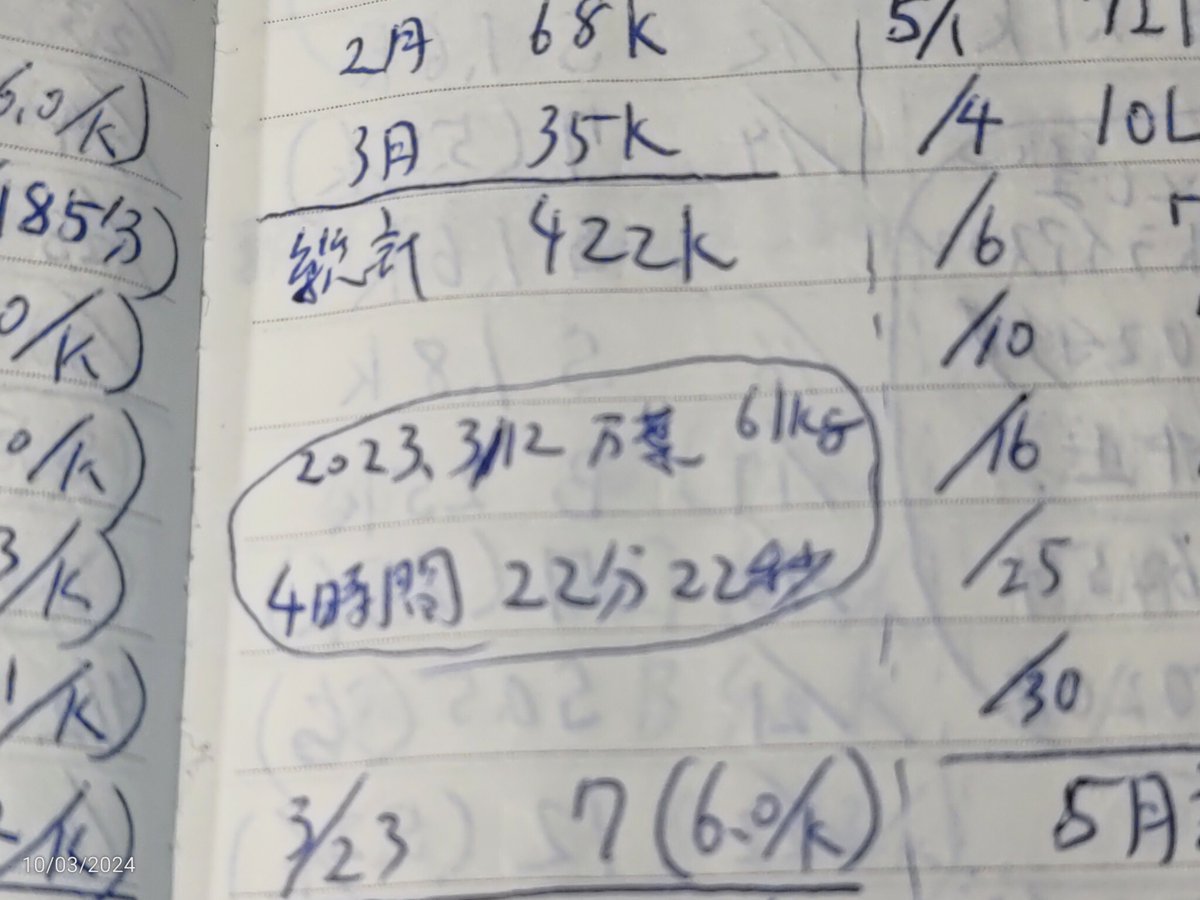 6.0/K)
185分)
0/K)
0/K)
3/K)
1/K)
/K)
2月 68K
3月 35K
総計 422K
2023. 3/12 万葉 61kg
4時間 22分 22秒
3/23 7 (6.0/K)
5/1 12
/4 10
/6
/10
/16
/25
/30
5月
10/03/2024